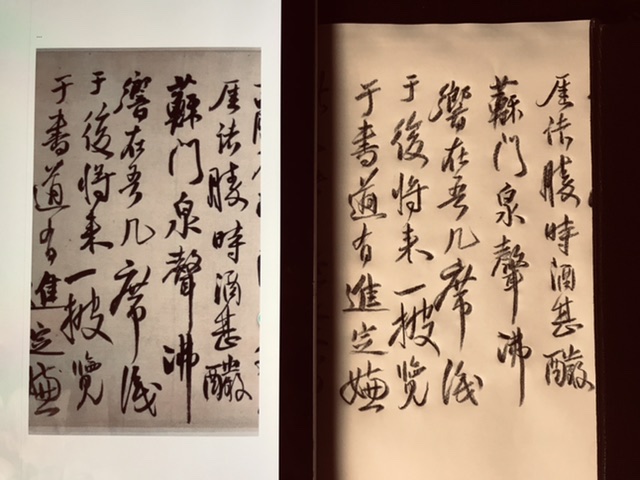 厓諸勝時酒甚釅
蘇門泉聲沸
響在吾几席識
于後將来一披覽
于書道有進定嫵
厓諸勝時酒甚釅
蘇門泉聲沸
響在吾几席識
于後將来一披覽
于書道有進定嫵